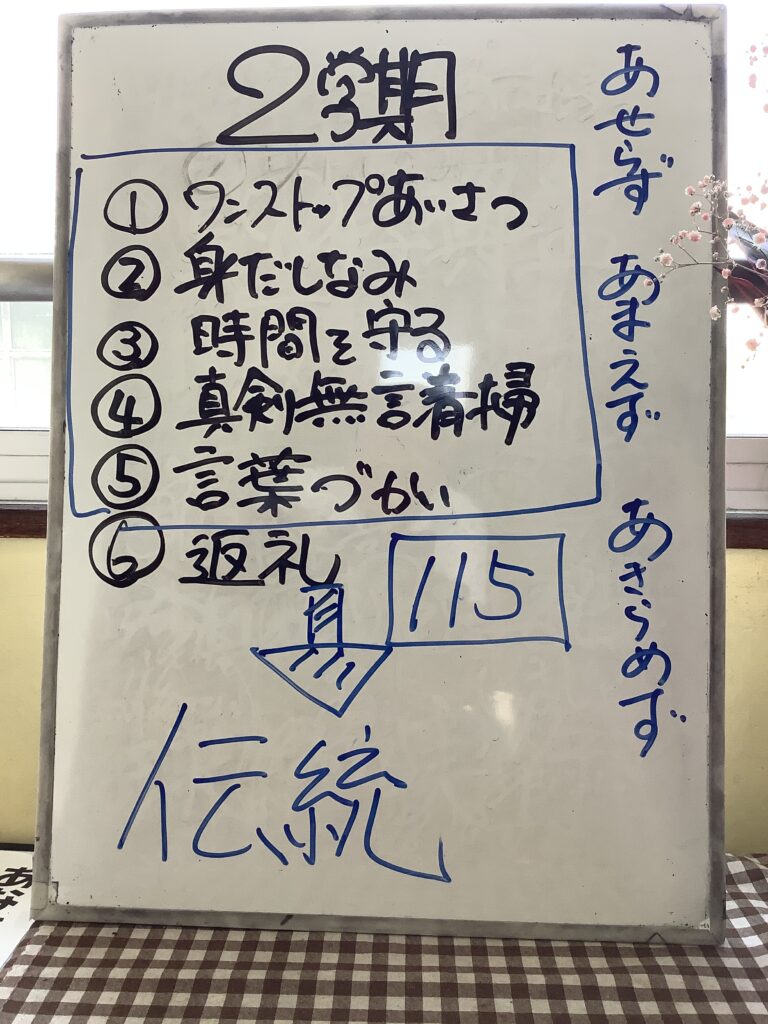 2学期
① ワンストップあいさつ
② 身だしなみ
③ 時間を守る
④ 真剣無言清掃
⑤ 言葉づかい
⑥ 返礼
115
伝統
あせらず あまえず あきらめず
あな